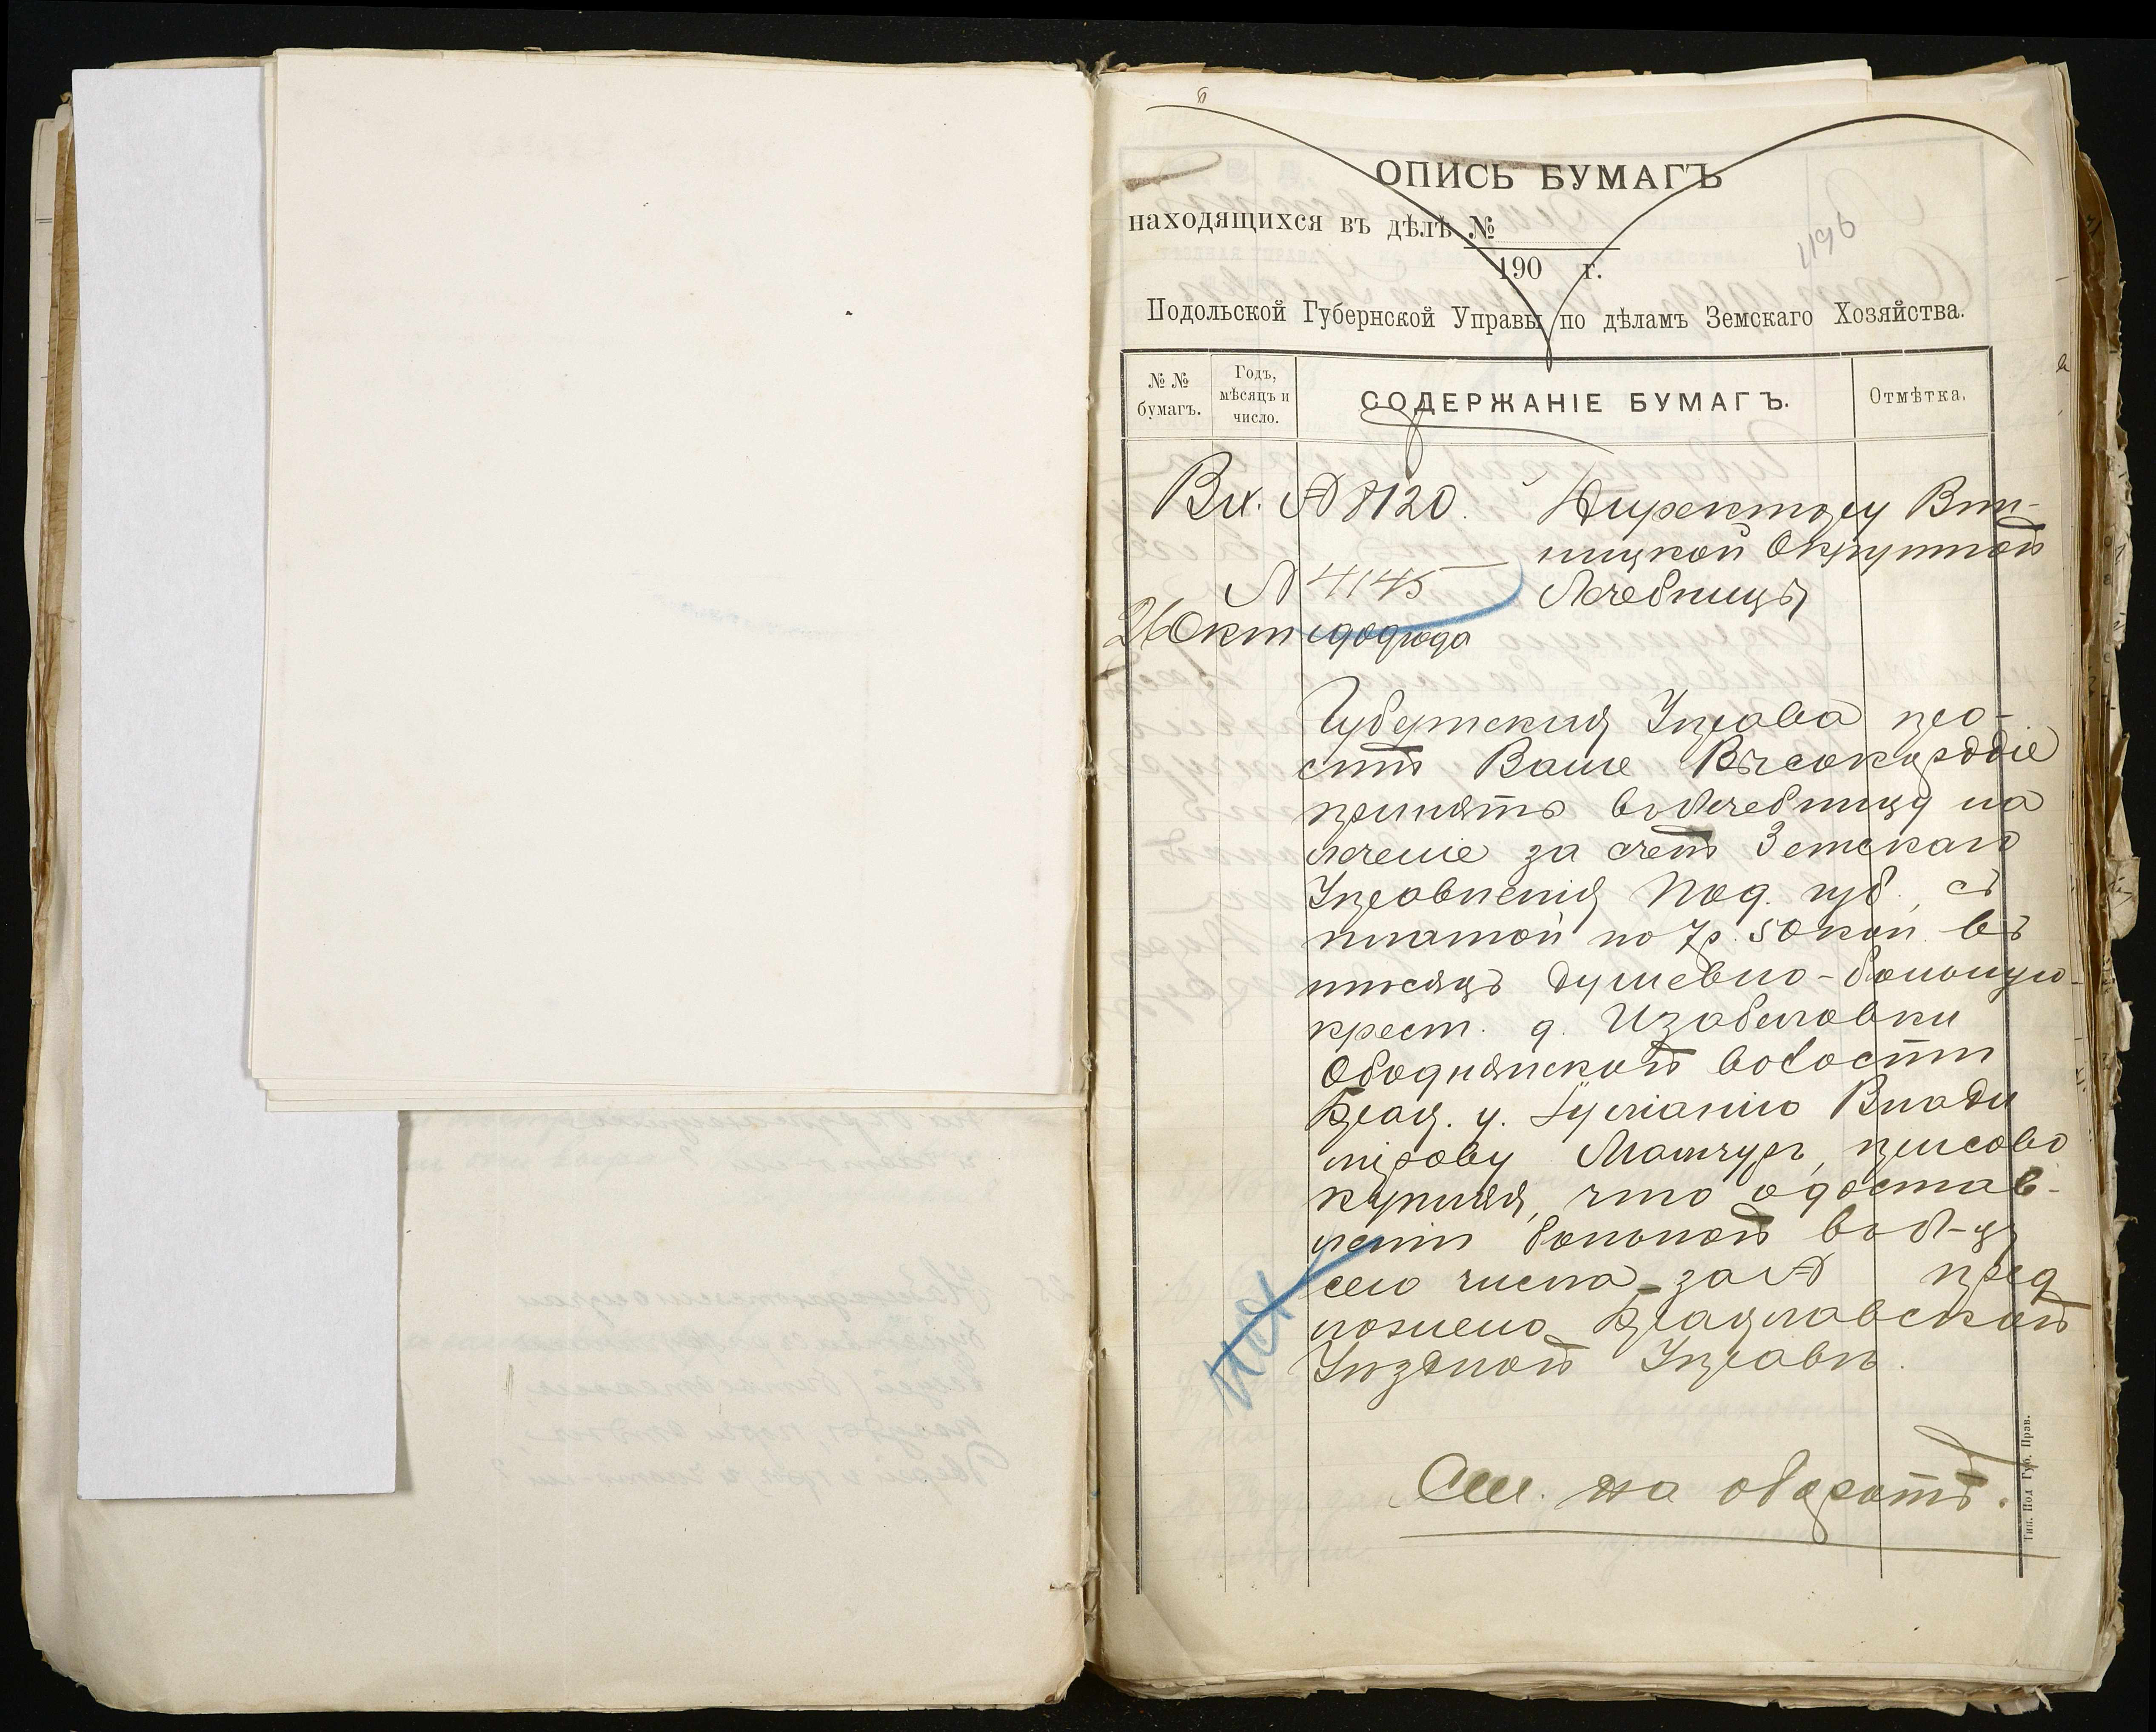 ОПИСЬ БУМАГЪ
находящихся въ дѣлѣ №
190 г.
Подольской Губернской Управы по дѣламъ Земскаго Хозяйства.
№ № бумагъ.
Годъ, мѣсяцъ и число.
СОДЕРЖАНІЕ БУМАГЪ.
Отмѣтка.
Вх. № 8120. Директору Вин-
ницкой Окружной
№ 4145 Лечебницы
26 Окт 1909 года
Губернская Управа про-
ситъ Ваше Высокородіе
принять въ Лечебницу на
леченіе за счетъ Земскаго
Управленія Под. губ., съ
платой по 7 р. 50 коп. въ
мѣсяцъ душевно-больную
крест. д. Изабеловки
Ободнянской волости
Брац. у. Іуліанію Влади
мірову Мончуръ, присово
купляя, что о достав-
леніи больной въ Л-цу
сего числа за № пред
ложено Брацлавской
Уѣздной Управѣ.
См. на оборотѣ.
Тип. Под Губ. Прав.